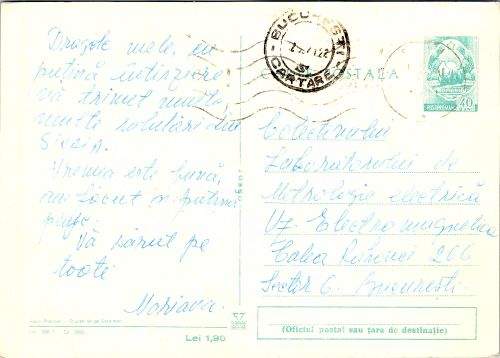 Dragele mele, cu
puțină întîrziere
vă trimet multe,
multe salutări din
Sinaia.
Vremea este bună,
am făcut și puțină
plajă.
Vă sărut pe
toate
Mariana.
BUCUREȘTI
CARTARE
C POȘTALA
POSTA ROMANA 40
Colectivului
Laboratorului de
Metrologie electrică
Uz. Electromagnetica
Calea Rahovei 266
Sector 6. București
Lei 1,90
(Oficiul poștal sau țara de destinație)